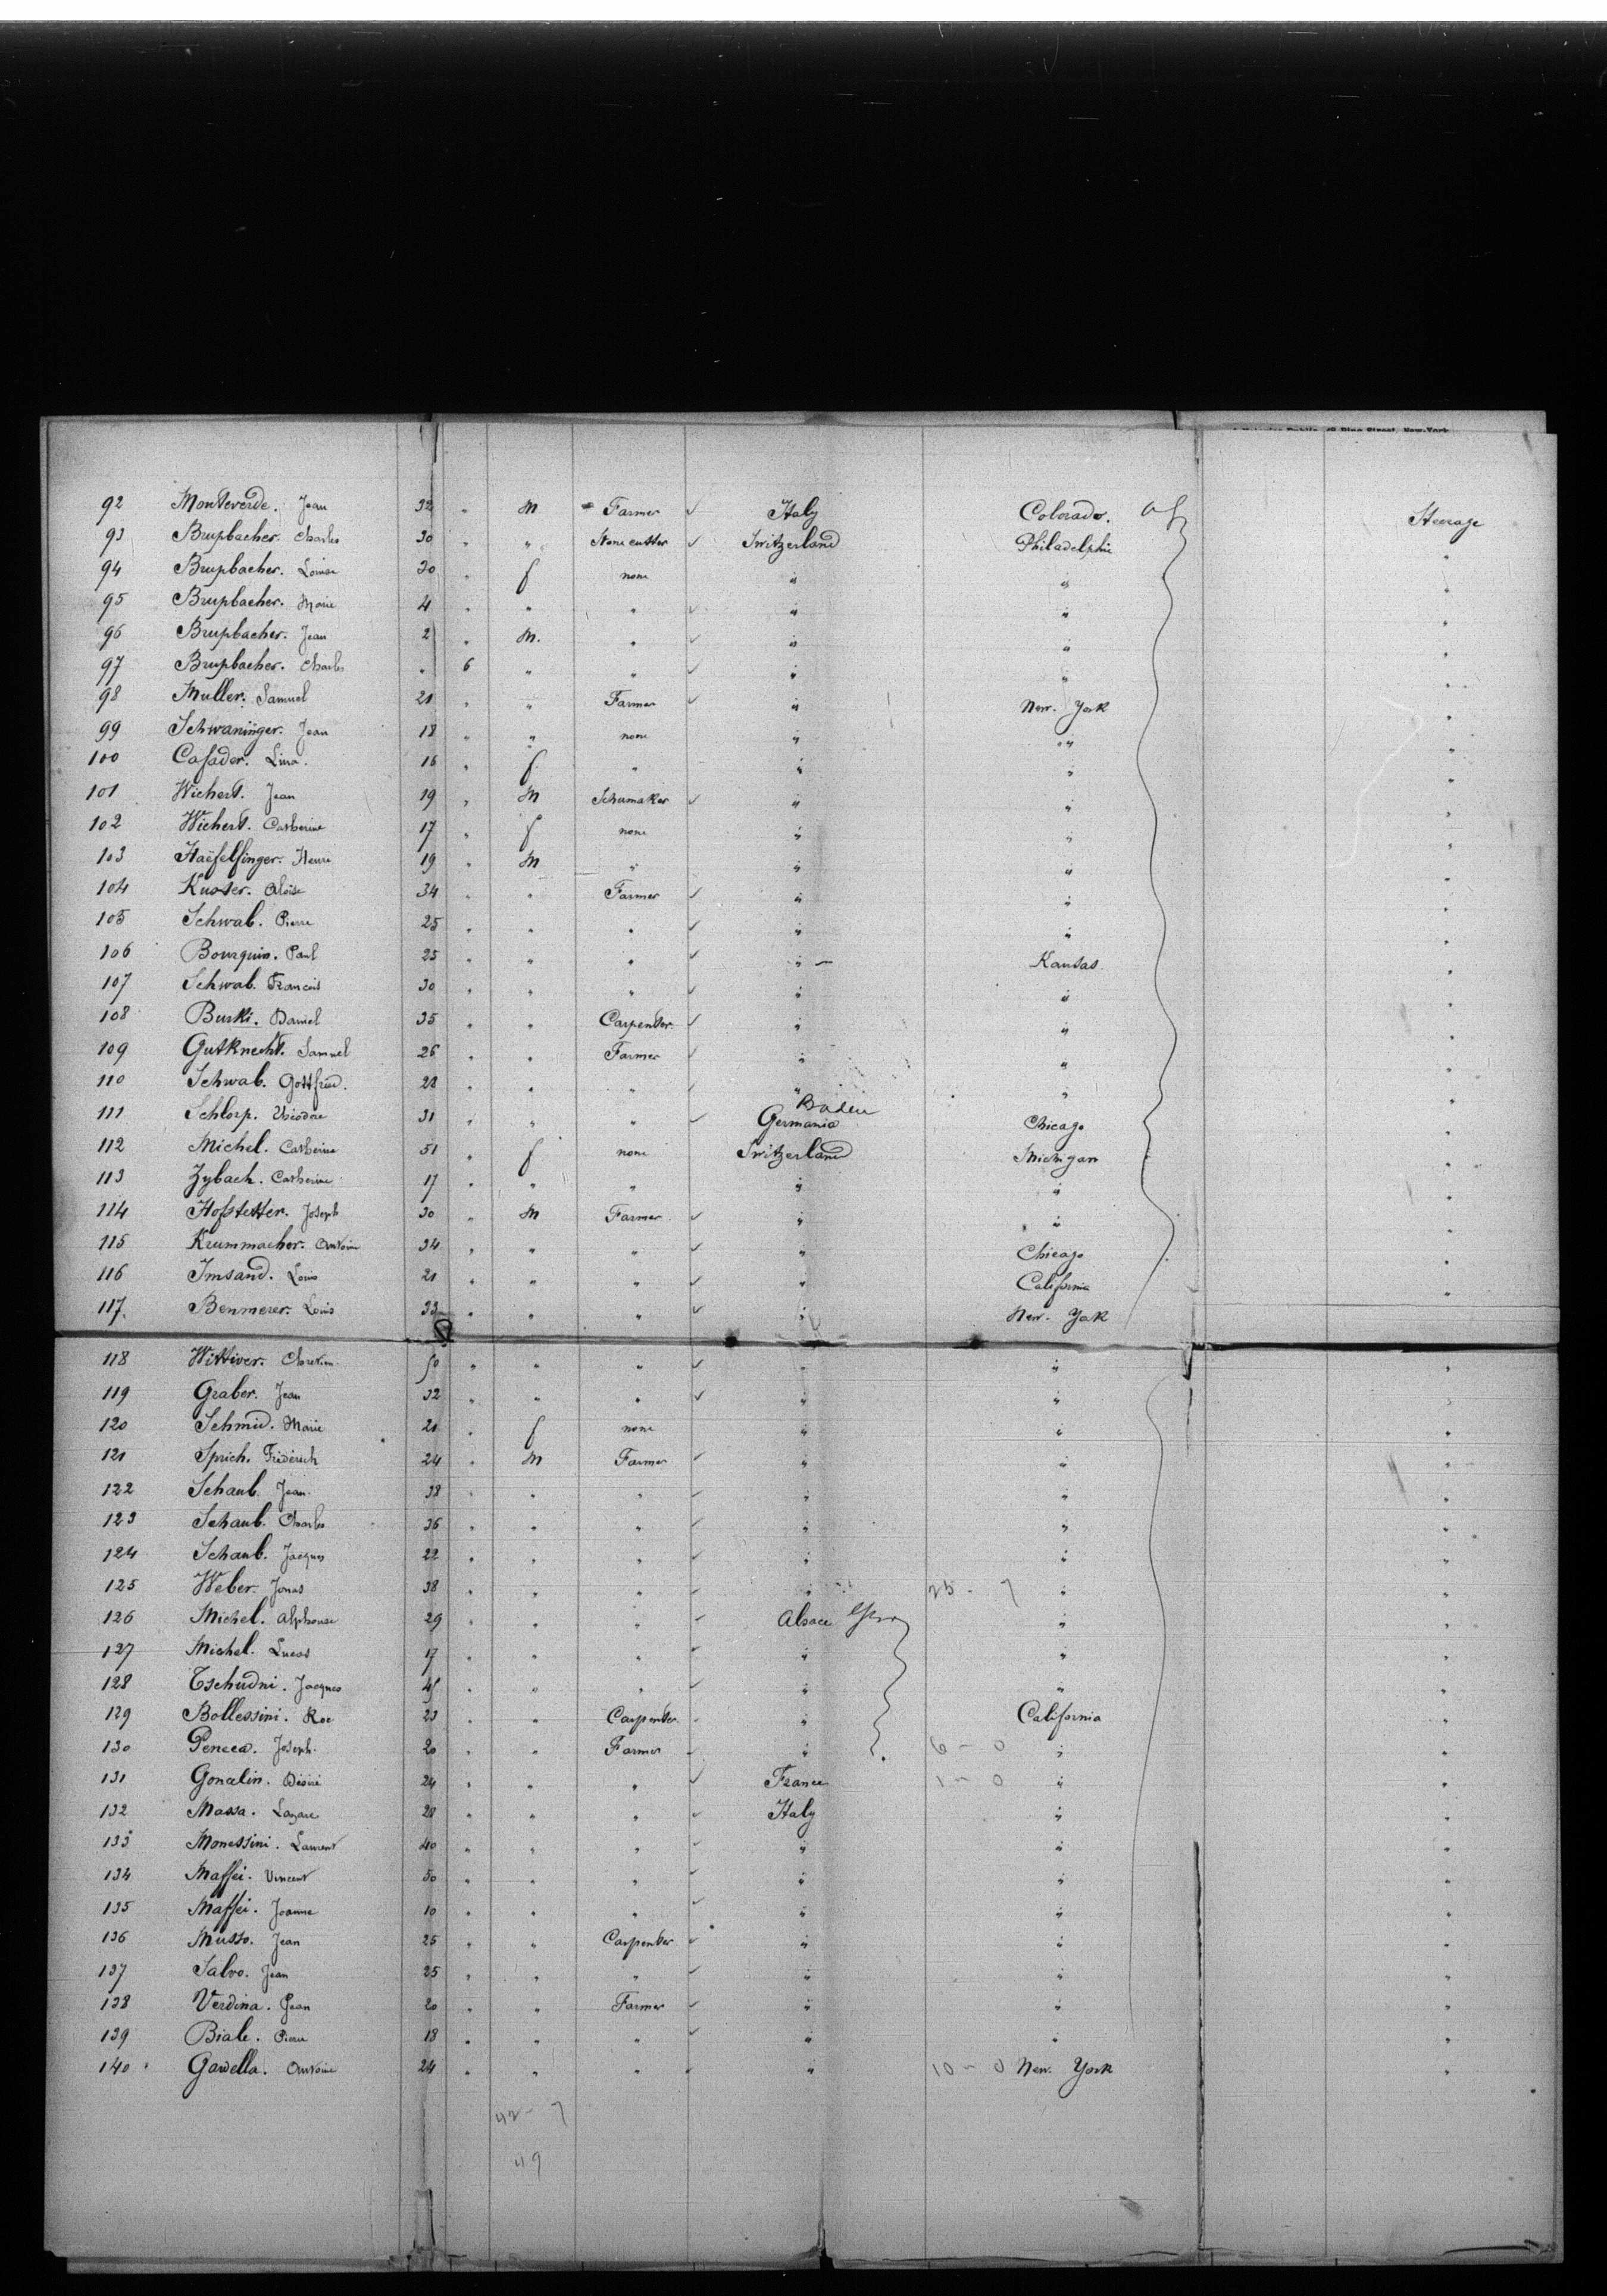 92 Monteverde. Jean 32 " M Farmer Italy Colorado. Steerage
93 Brupbacher. Charles 30 " " Stone cutter Switzerland Philadelphie "
94 Brupbacher. Louise 30 " f none " " "
95 Brupbacher. Marie 4 " " " " " "
96 Brupbacher. Jean 2 " M. " " " "
97 Brupbacher. Charles " 6 " " " " "
98 Muller. Samuel 21 " " Farmer " New. York "
99 Schwaninger. Jean 18 " " none " " "
100 Casader. Lina. 16 " f " " " "
101 Wichert. Jean 19 " M Schumaker " " "
102 Wichert. Catherine 17 " f none " " "
103 Haefelfinger. Henri 19 " M " " " "
104 Kuster. Aloïse 34 " " Farmer " " "
105 Schwab. Pierre 25 " " " " " "
106 Bourquin. Paul 25 " " " " Kansas "
107 Schwab. Francois 30 " " " " " "
108 Burki. Daniel 35 " " Carpenter " " "
109 Gutknecht. Samuel 26 " " Farmer " " "
110 Schwab. Gottfried. 28 " " " " " "
Baden
111 Schlorp. 31 " " " Germania Chicago "
112 Michel. Catherine 51 " f none Switzerland Michigan "
113 Zybach. Catherine 17 " " " " " "
114 Hofstetter. Joseph 30 " M Farmer " " "
115 Krummacher. Antoine 34 " " " " Chicago "
116 Imsand. Louis 21 " " " " California "
117. Benmerer. Louis 33 " " " " New. York
118 Wittiver. 50 " " " " " "
119 Graber. Jean 32 " " " " " "
120 Schmid. Marie 21 " f none " " "
121 Sprich. Friderich 24 " M Farmer " " "
122 Schaub. Jean. 38 " " " " " "
123 Schaub. Charles 36 " " " " " "
124 Schaub. Jacques 22 " " " " " "
125 Weber. Jonas 38 " " " " 25 - 7 " "
126 Michel. Alphonse 29 " " " Alsace " "
127 Michel. Lucas 17 " " " " " "
128 Tschudni. Jacques 45 " " " " " "
129 Bollessini. Roc 23 " " Carpenter. " California "
130 Peneca. Joseph. 20 " " Farmer " 6 - 0 " "
131 Gonalin. Désiré 24 " " " France 1 - 0 " "
132 Massa. Lazare 28 " " " Italy " "
133 Monessini. Laurent 40 " " " " " "
134 Maffei. Vincent 50 " " " " " "
135 Maffei. Jeanne 10 " " " " " "
136 Musso. Jean 25 " " Carpenter " " "
137 Salvo. Jean 25 " " " " " "
138 Verdina. Jean 20 " " Farmer " " "
139 Biale. Pierre 18 " " " " " "
140 Gawella. Antoine 24 " " " " 10 - 0 New. York "
42 - 7
49